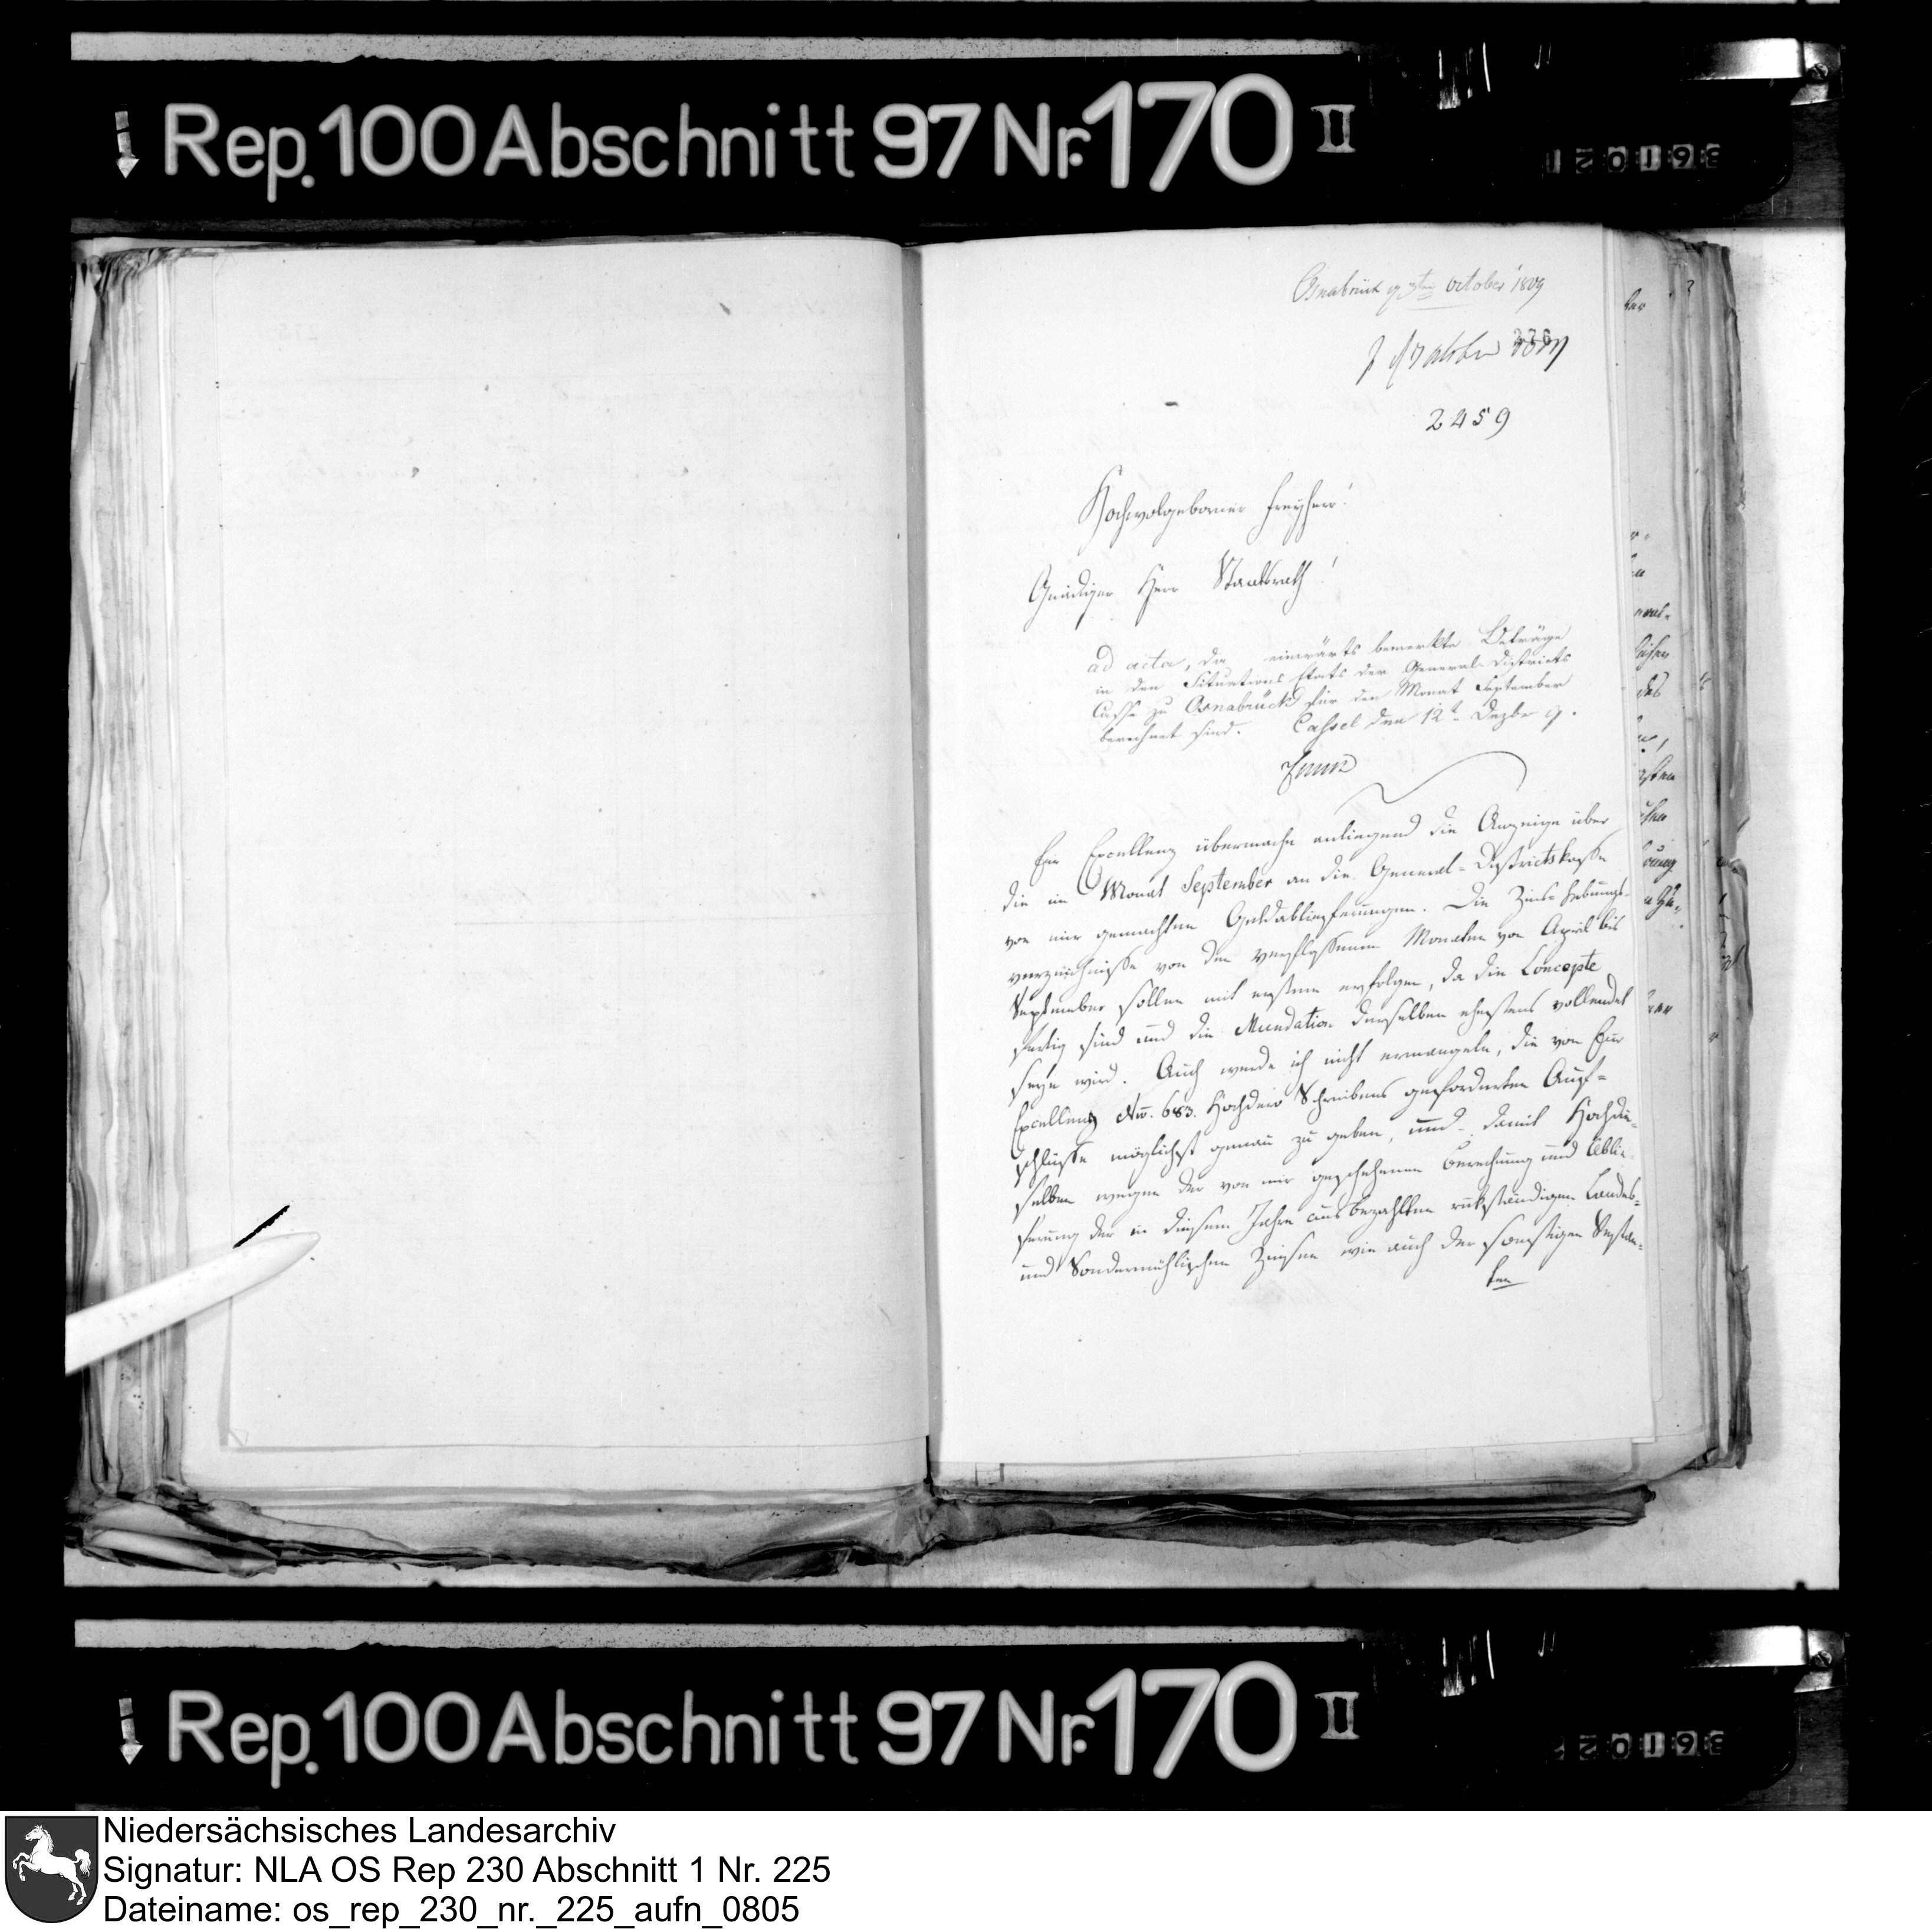 Rep. 100 Abschnitt 97 Nr. 170 II
Osnabrück 3ten october 1809
226
2459
Hochwolgeborner Freyherr!
Gnädiger Herr Staatsrath!
ad acta, da einwärts bemerkte Beträge
in den Situations Etats der General-Districts
Casse zu Osnabrück für den Monat September
berechnet sind. Cassel den 12t Dezbr 9.
Eur Excellenz übermache anliegend die Anzeige über
die im Monat September an die General-Districtskasse
von mir gemachten Geldablieferungen. Die Zins-Hebungs-
verzeichnisse von den verflossenen Monaten von April bis
September sollen mit erstem erfolgen, da die Concepte
fertig sind und die Mundation derselben ehestens vollendet
seyn wird. Auch werde ich nicht ermangeln, die von Eur
Excellenz No. 683. Hochdero Schreibens geforderten Auf-
schlüsse möglichst genau zu geben, und damit Hochdie-
selben wegen der von mir geschehenen Berechnung und Ablie-
ferung der in diesem Jahre ausbezahlten rückständigen Landes-
und Sondermühlischen Zinsen wie auch der sonstigen Restan-
ten
Rep. 100 Abschnitt 97 Nr. 170 II
Niedersächsisches Landesarchiv
Signatur: NLA OS Rep 230 Abschnitt 1 Nr. 225
Dateiname: os_rep_230_nr._225_aufn_0805